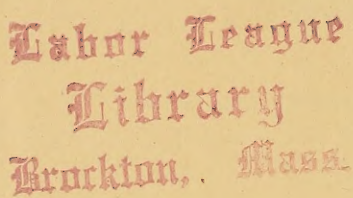 Labor League
Library
Brockton, Mass.